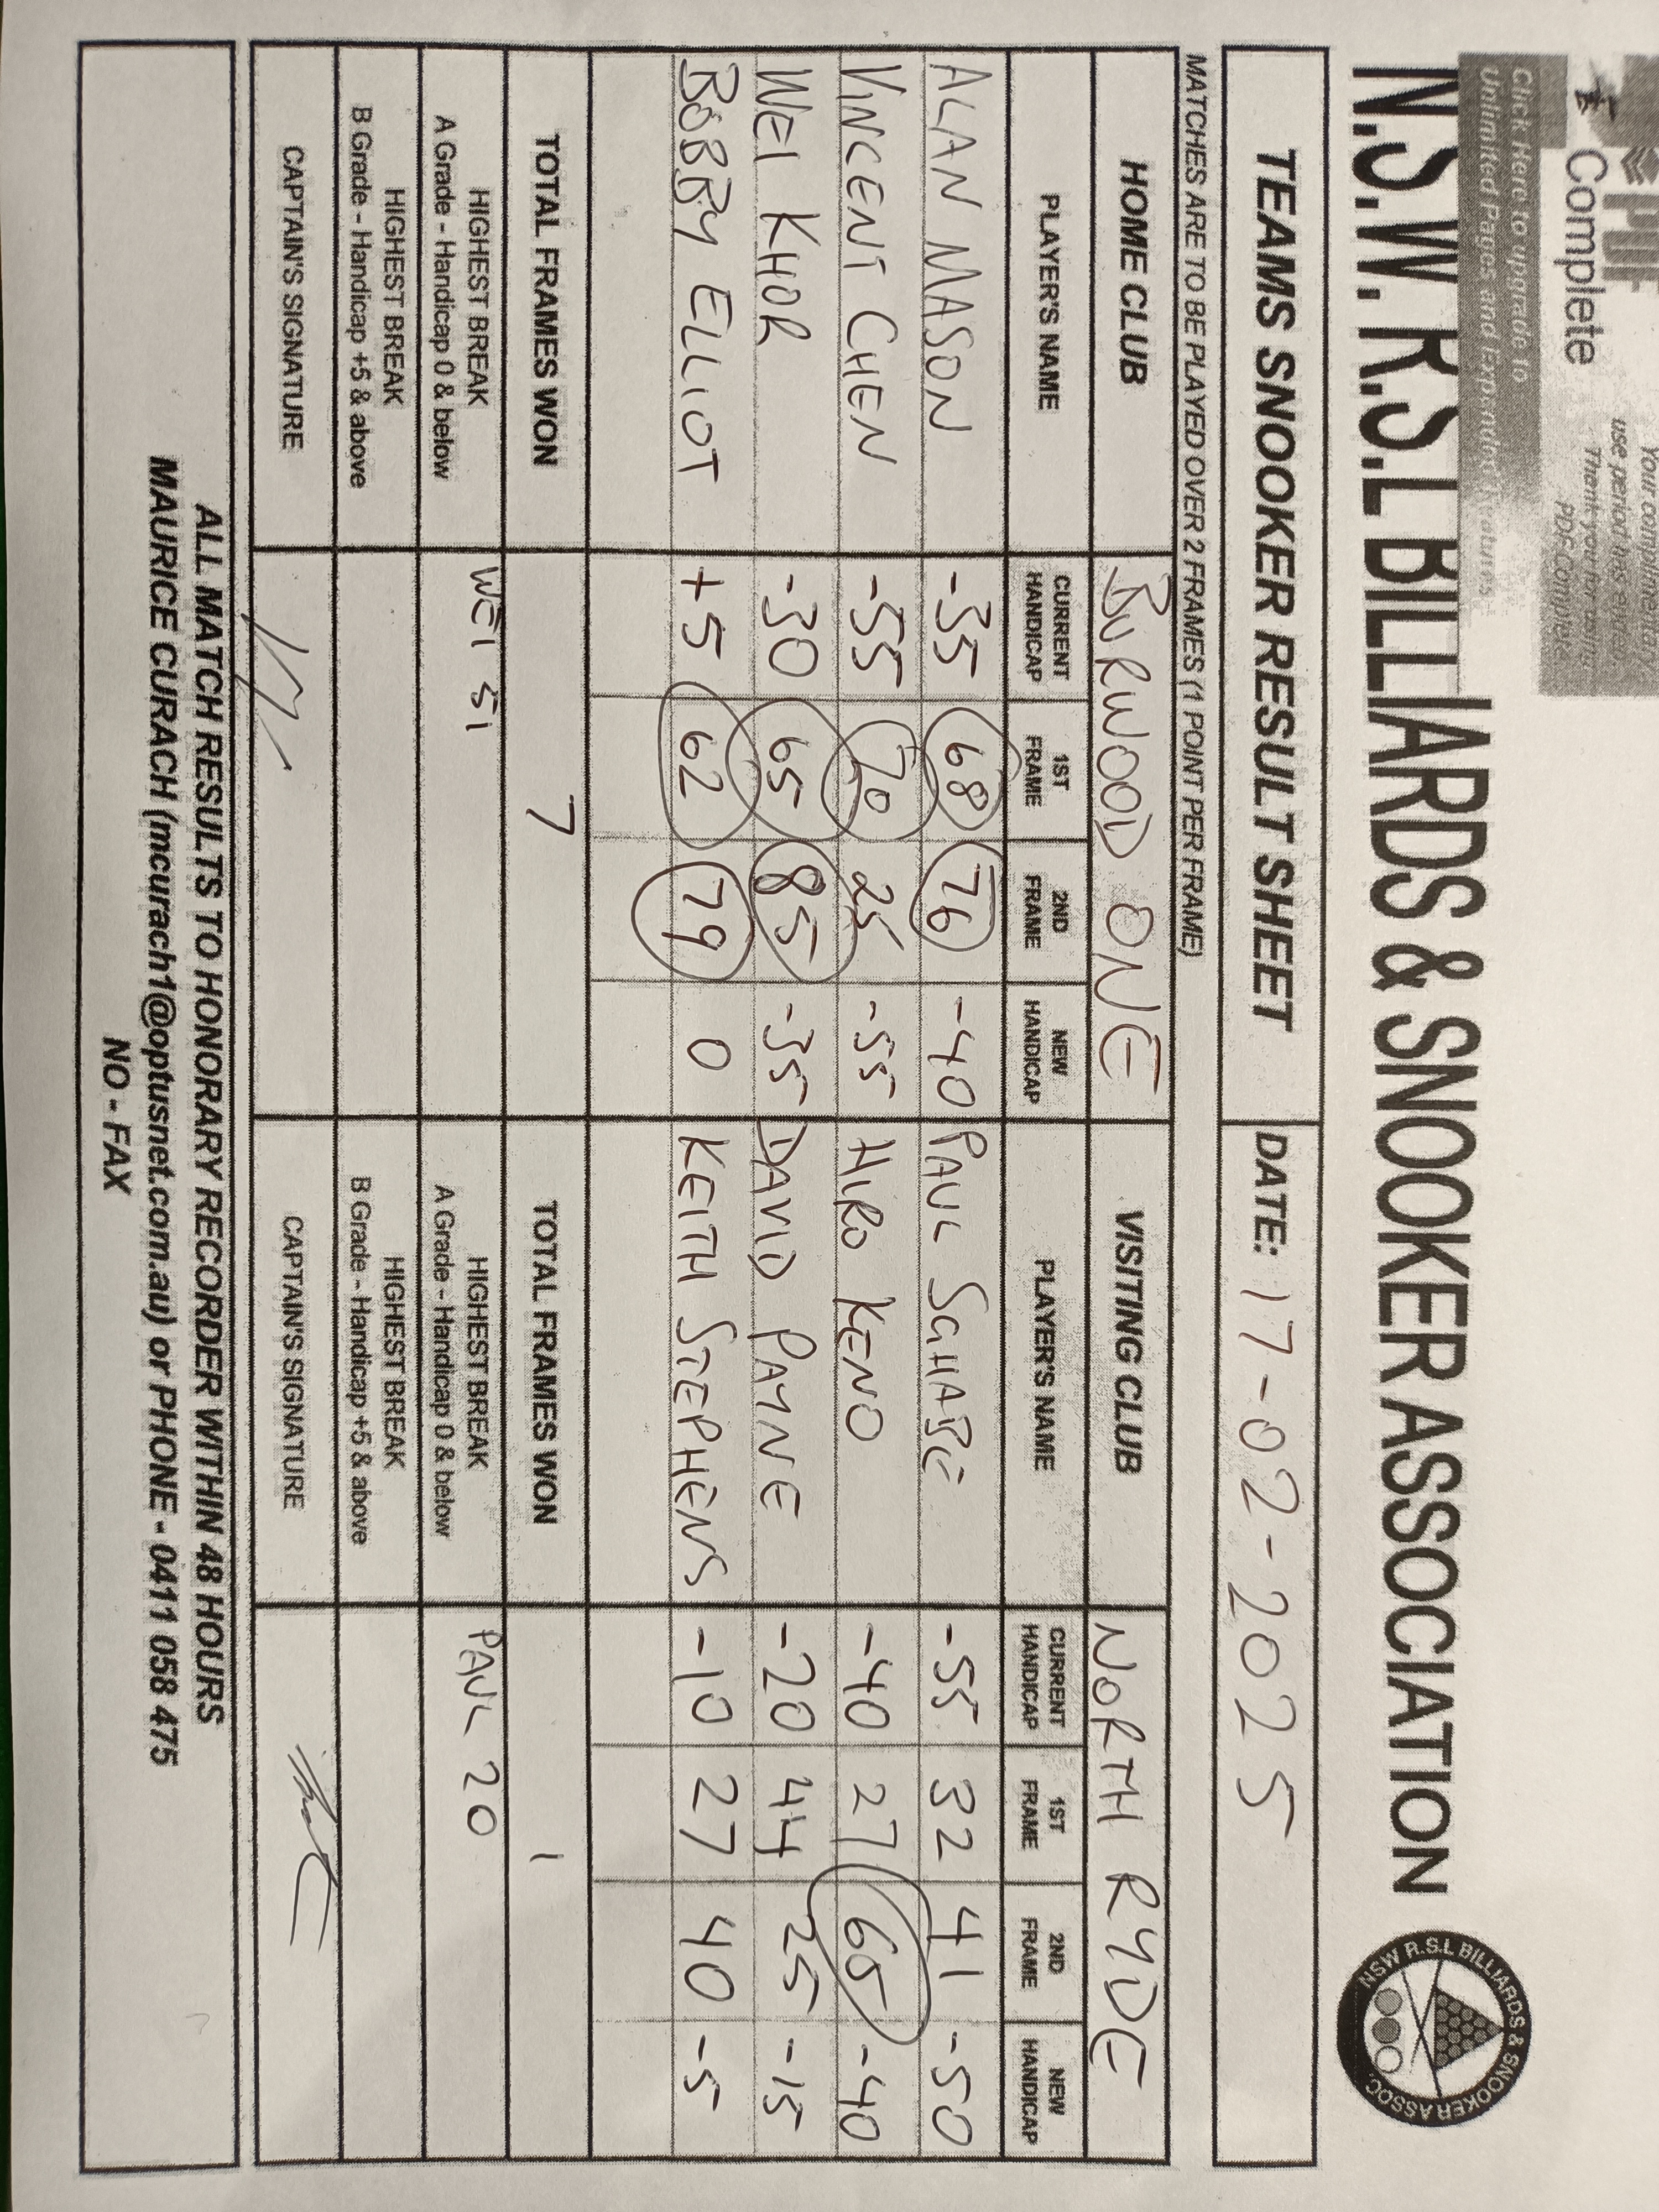 PDF
Complete
Click Here to upgrade to
Unlimited Pages and Expanded Features
Your complimentary
use period has ended.
Thank you for using
PDF Complete.
N.S.W. R.S.L BILLIARDS & SNOOKER ASSOCIATION
NSW R.S.L BILLIARDS & SNOOKER ASSOC.
TEAMS SNOOKER RESULT SHEET DATE: 17-02-2025
MATCHES ARE TO BE PLAYED OVER 2 FRAMES (1 POINT PER FRAME)
HOME CLUB BURWOOD ONE VISITING CLUB NORTH RYDE
PLAYER'S NAME CURRENT HANDICAP 1ST FRAME 2ND FRAME NEW HANDICAP PLAYER'S NAME CURRENT HANDICAP 1ST FRAME 2ND FRAME NEW HANDICAP
ALAN MASON -35 68 76 -40 PAUL SCHABE -55 32 41 -50
VINCENT CHEN -55 70 25 -55 HIRO KENO -40 27 65 -40
WEI KHOR -30 65 85 -35 DAVID PAYNE -20 44 25 -15
BOBBY ELLIOT +5 62 79 0 KEITH STEPHENS -10 27 40 -5
TOTAL FRAMES WON 7 TOTAL FRAMES WON 1
HIGHEST BREAK WEI 51 HIGHEST BREAK PAUL 20
A Grade - Handicap 0 & below A Grade - Handicap 0 & below
HIGHEST BREAK HIGHEST BREAK
B Grade - Handicap +5 & above B Grade - Handicap +5 & above
CAPTAIN'S SIGNATURE CAPTAIN'S SIGNATURE
ALL MATCH RESULTS TO HONORARY RECORDER WITHIN 48 HOURS
MAURICE CURACH (mcurach1@optusnet.com.au) or PHONE - 0411 058 475
NO - FAX